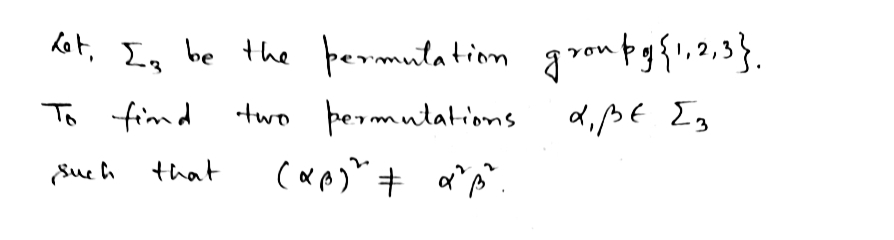 Let, Σ₃ be the permutation group of {1,2,3}.
To find two permutations α,β ∈ Σ₃
such that (αβ)² ≠ α²β².